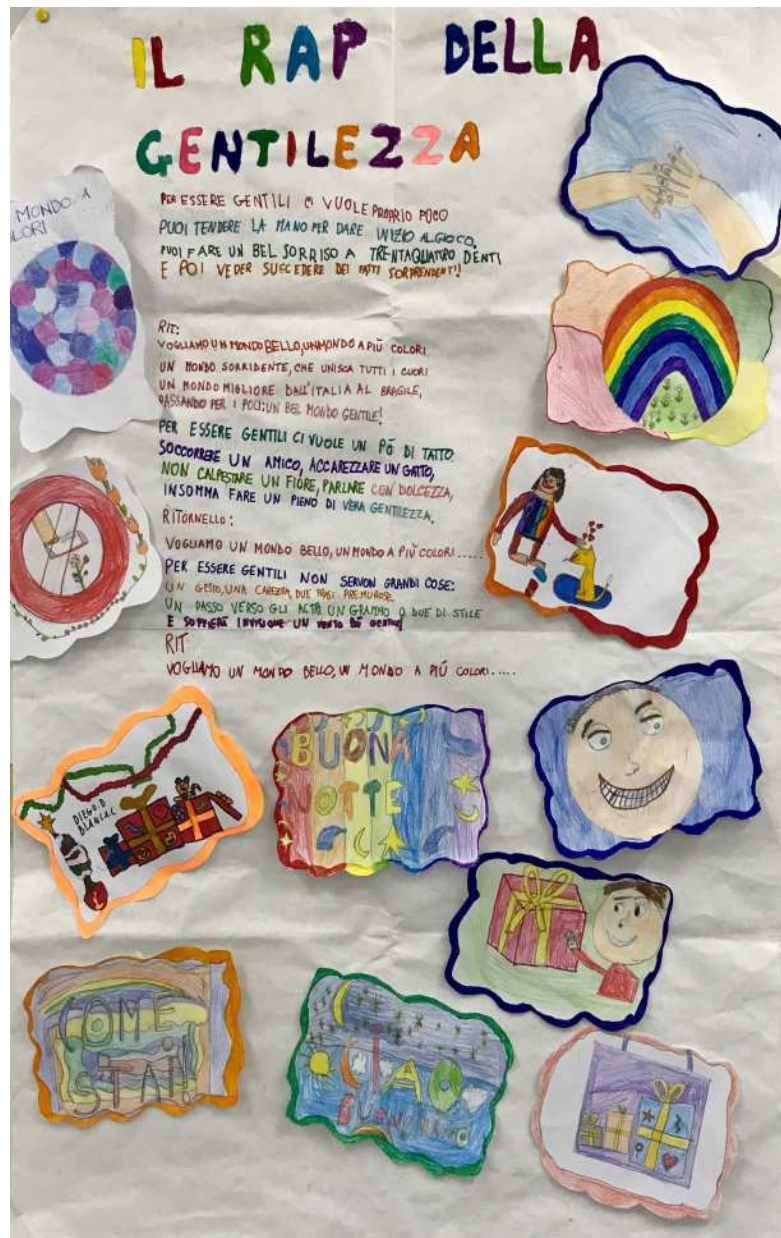 IL RAP DELLA
GENTILEZZA
PER ESSERE GENTILI CI VUOLE PROPRIO POCO
PUOI TENDERE LA MANO PER DARE INIZIO AL GIOCO,
PUOI FARE UN BEL SORRISO A TRENTAQUATTRO DENTI
E POI VEDER SUCCEDERE DEI FATTI SORPRENDENTI!
MONDO A
LORI
RIT:
VOGLIAMO UN MONDO BELLO, UN MONDO A PIÙ COLORI
UN MONDO SORRIDENTE, CHE UNISCA TUTTI I CUORI
UN MONDO MIGLIORE DALL'ITALIA AL BRASILE,
PASSANDO PER I POLI: UN BEL MONDO GENTILE!
PER ESSERE GENTILI CI VUOLE UN PÓ DI TATTO:
SOCCORRERE UN AMICO, ACCAREZZARE UN GATTO,
NON CALPESTARE UN FIORE, PARLARE CON DOLCEZZA,
INSOMMA FARE UN PIENO DI VERA GENTILEZZA.
RITORNELLO:
VOGLIAMO UN MONDO BELLO, UN MONDO A PIÙ COLORI.....
PER ESSERE GENTILI NON SERVON GRANDI COSE:
UN GESTO, UNA CAREZZA, DUE FRASI PREMUROSE
UN PASSO VERSO GLI ALTRI UN GRAMMO O DUE DI STILE
E SOFFIERÀ UN VENTO
RIT
VOGLIAMO UN MONDO BELLO, UN MONDO A PIÙ COLORI.....
BUONA
NOTTE
DIEGO.D
COME
STAI!
CIAO